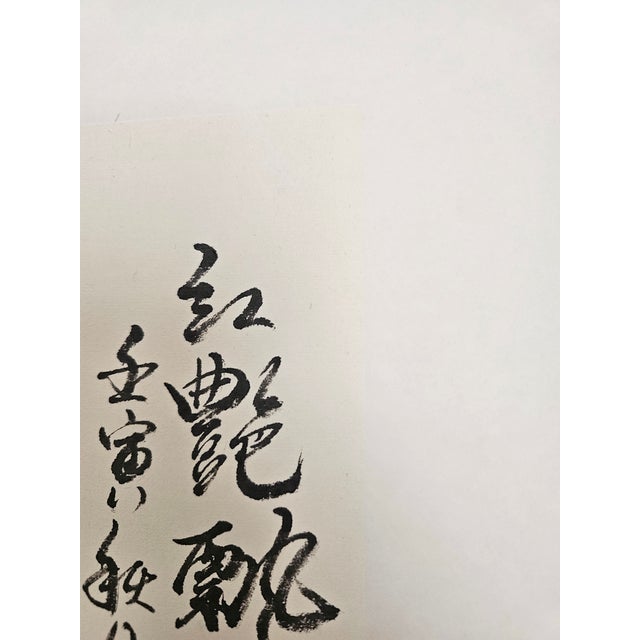 红艷飄
壬寅秋